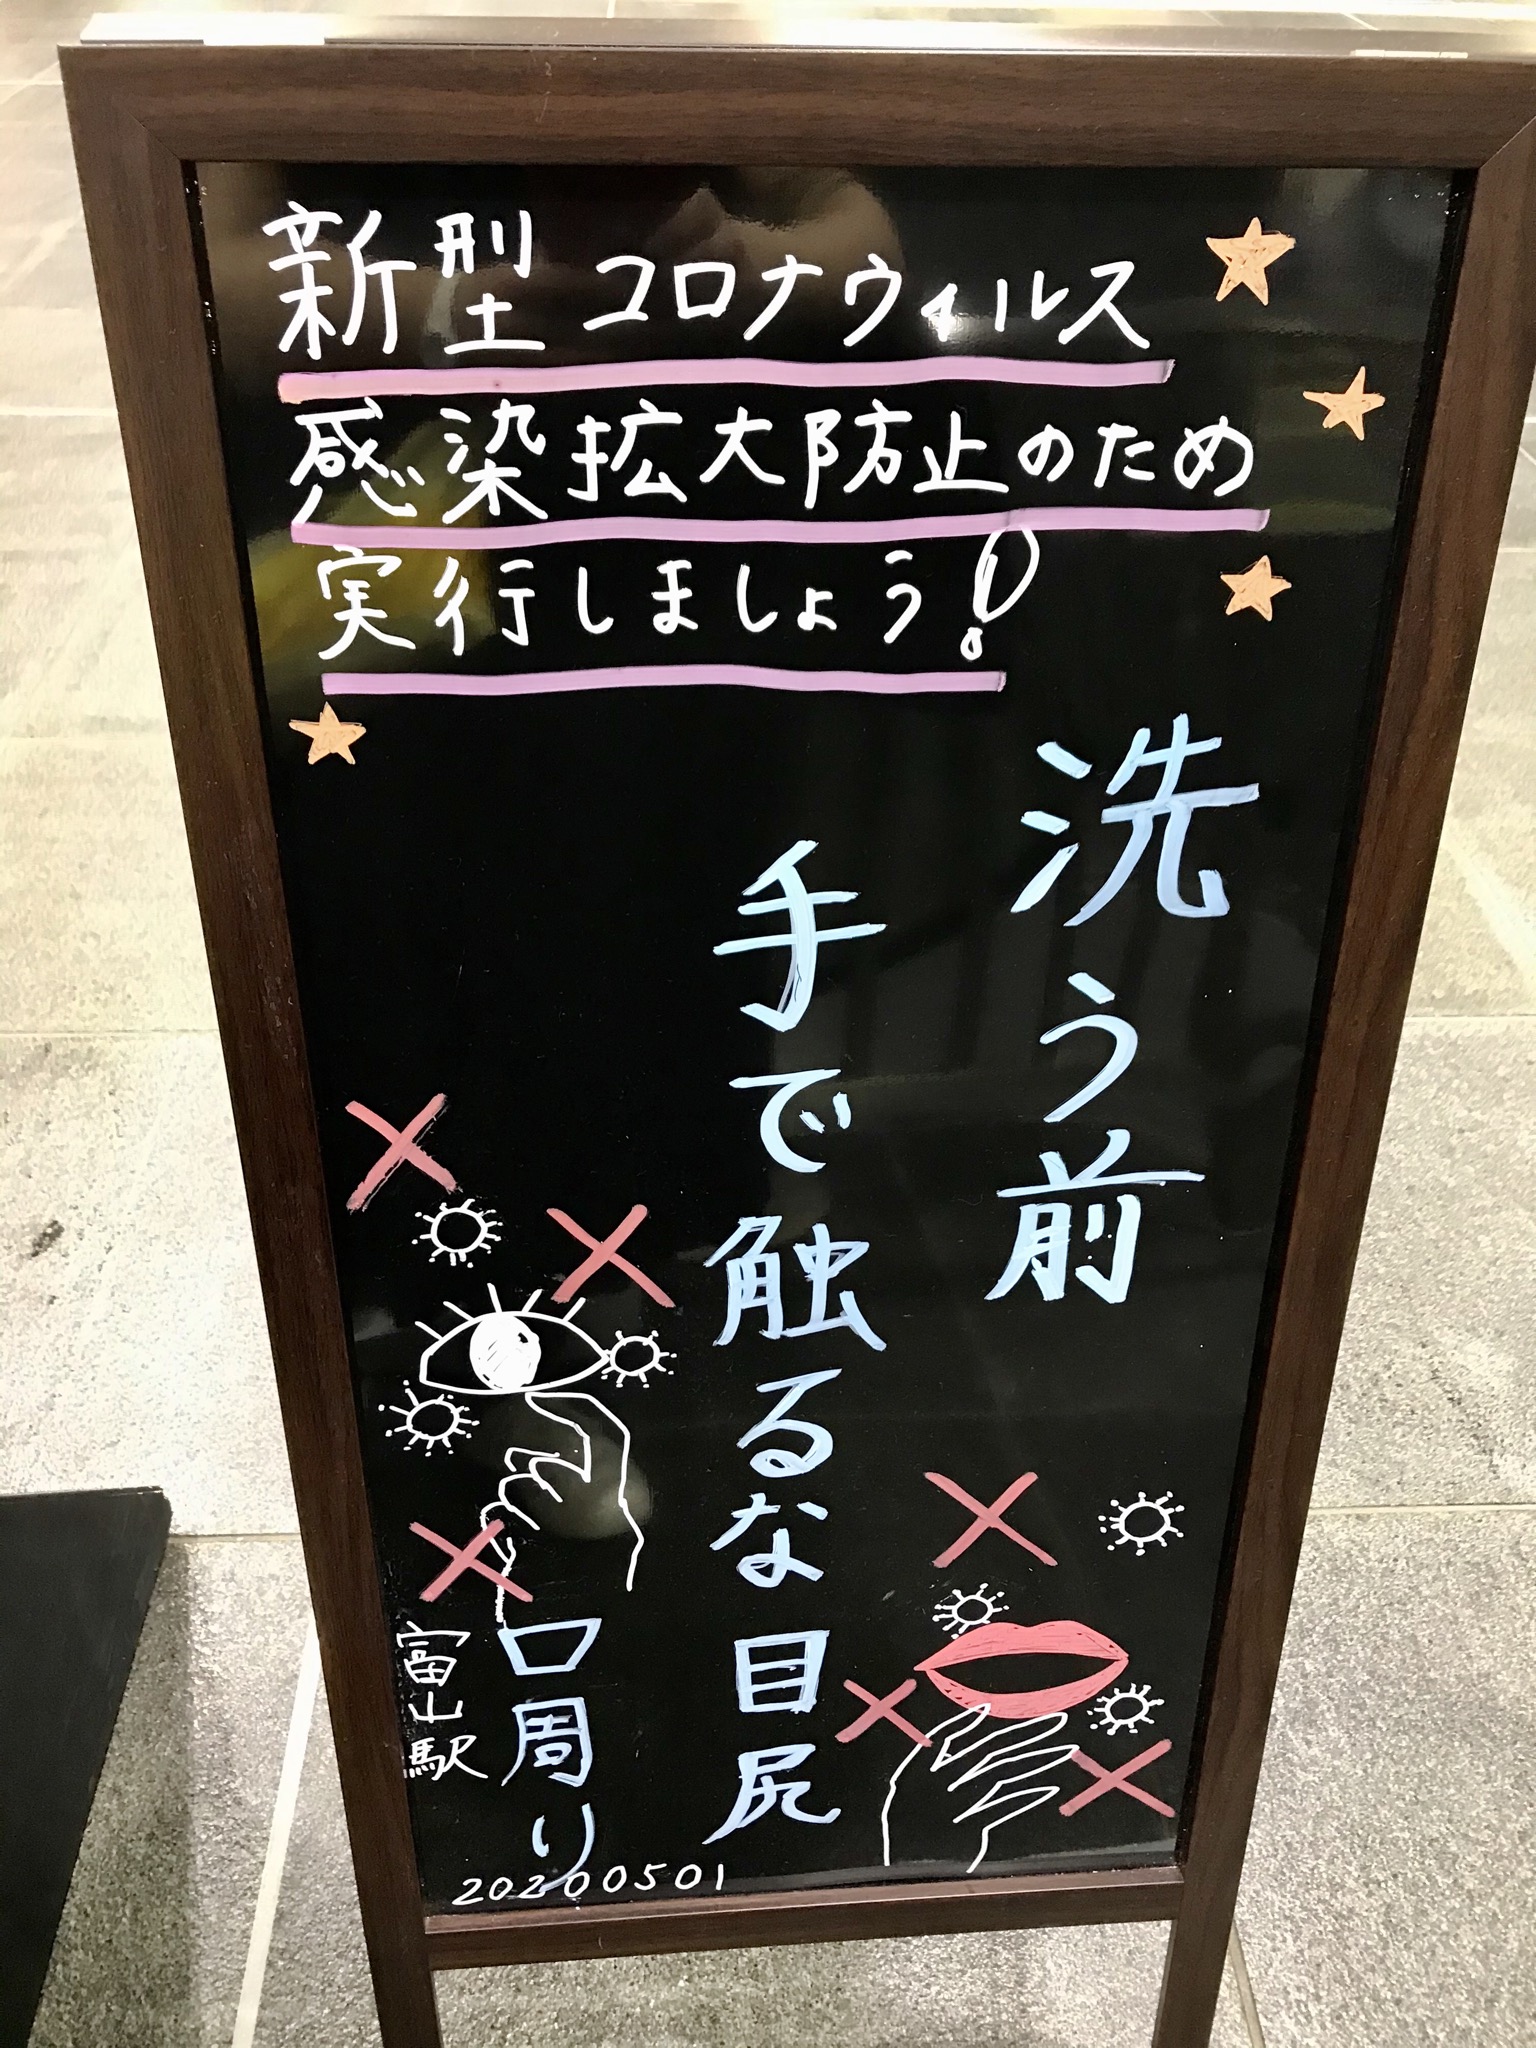 新型コロナウィルス
感染拡大防止のため
実行しましょう!
洗う前
手で触るな目尻
口周り
富山駅
20200501